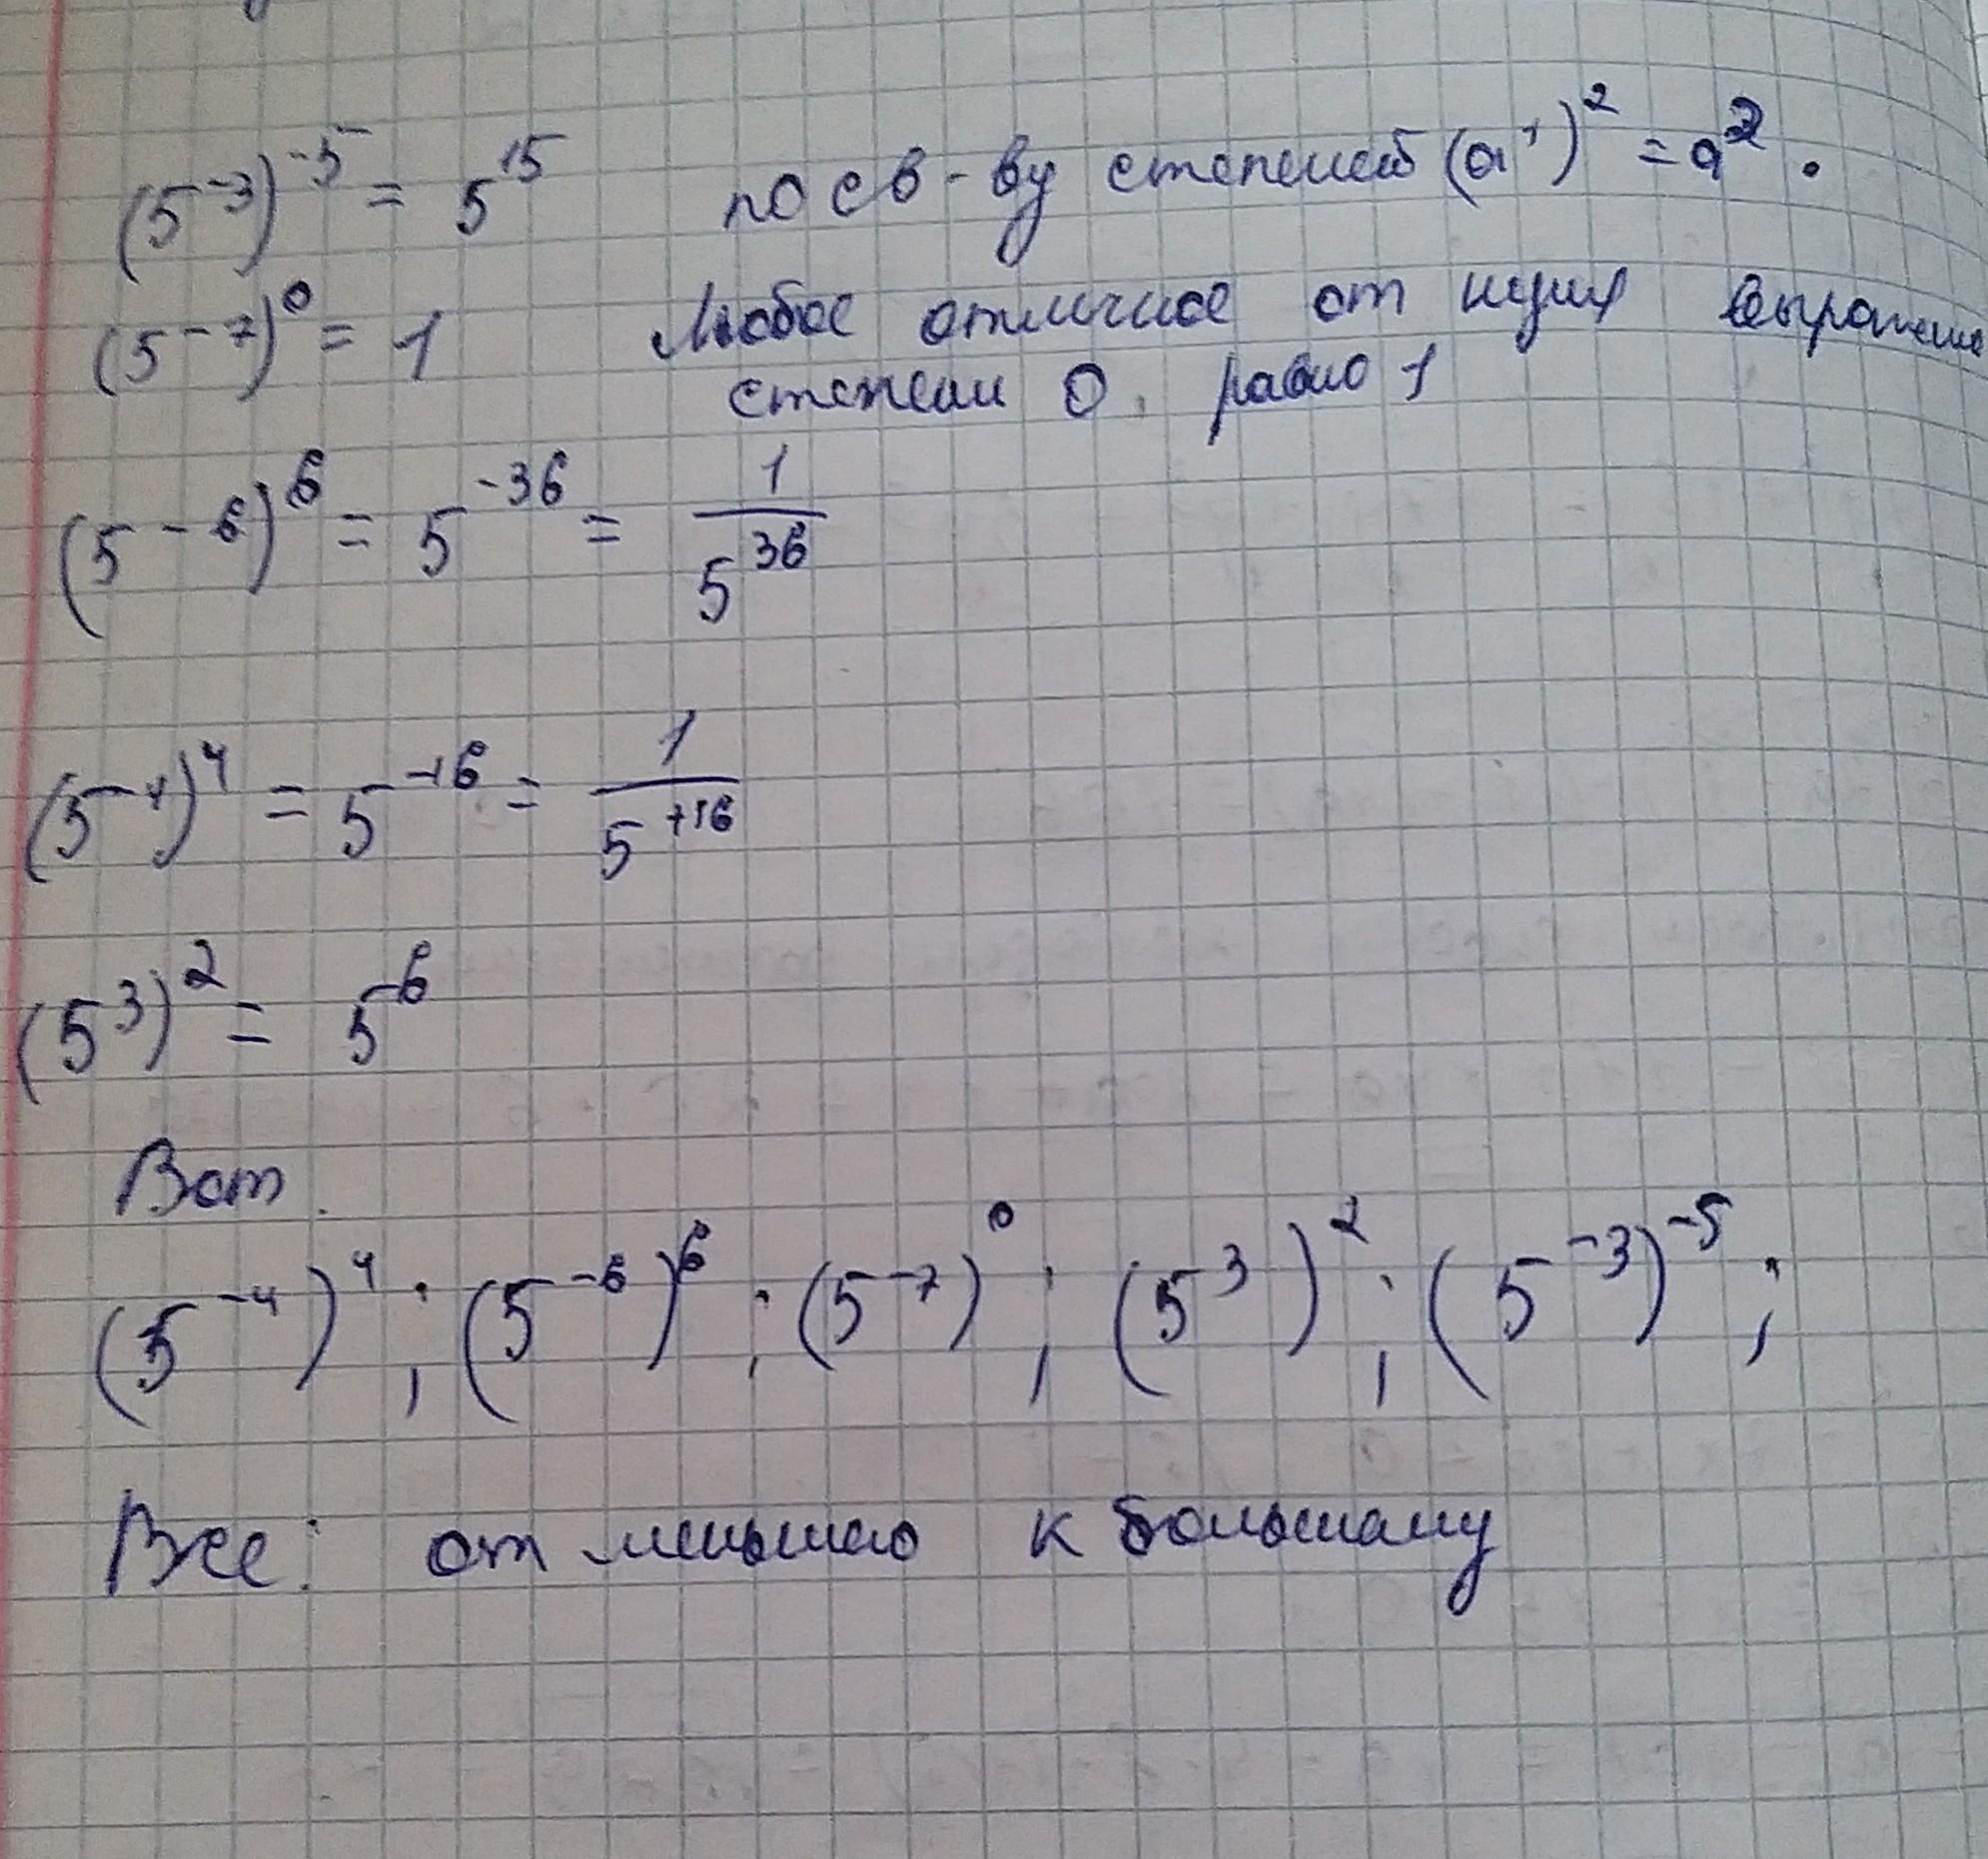 (5⁻³)⁻⁵ = 5¹⁵ по св-ву степеней (a¹)² = a² .
(5⁻⁷)⁰ = 1 Любое отличное от нуля выражение
степени 0, равно 1
(5⁻⁶)⁶ = 5⁻³⁶ = 1/5³⁶
(5⁻⁴)⁴ = 5⁻¹⁶ = 1/5⁺¹⁶
(5³)² = 5⁶
Вот.
(5⁻⁴)⁴ ; (5⁻⁶)⁶ ; (5⁻⁷)⁰ ; (5³)² ; (5⁻³)⁻⁵ ;
Все: от меньшего к большаму